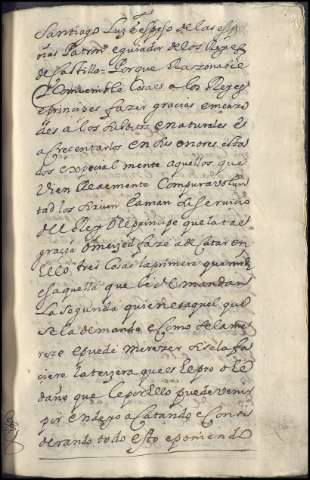 Santiago Luz e espejo de las espa
ñas Patron e guiador de los Reyes
de Castilla Porque Razonable
e Conbenible Cosa es a los Reyes
e principes fazer gracias e merze
des a los subditos e naturales e
acrecentarlos en sus onores esta
dos espezialmente aquellos que
vien lealmente Con pura volun
tad los sirven e aman su servicio
del Rey o el principe que la tal
gracia o merzed faze a de Catar en
ello tres Cosas la primera que merzed
es aquella que le demandan
La segunda quien es aquel que
se la demanda e Como se la me
reze e puede merezer si se la fi
ciere la terzera que es el pro o el
daño que le por ello puede venir
por ende yo acatando e Consi
derando todo esto e poniendo